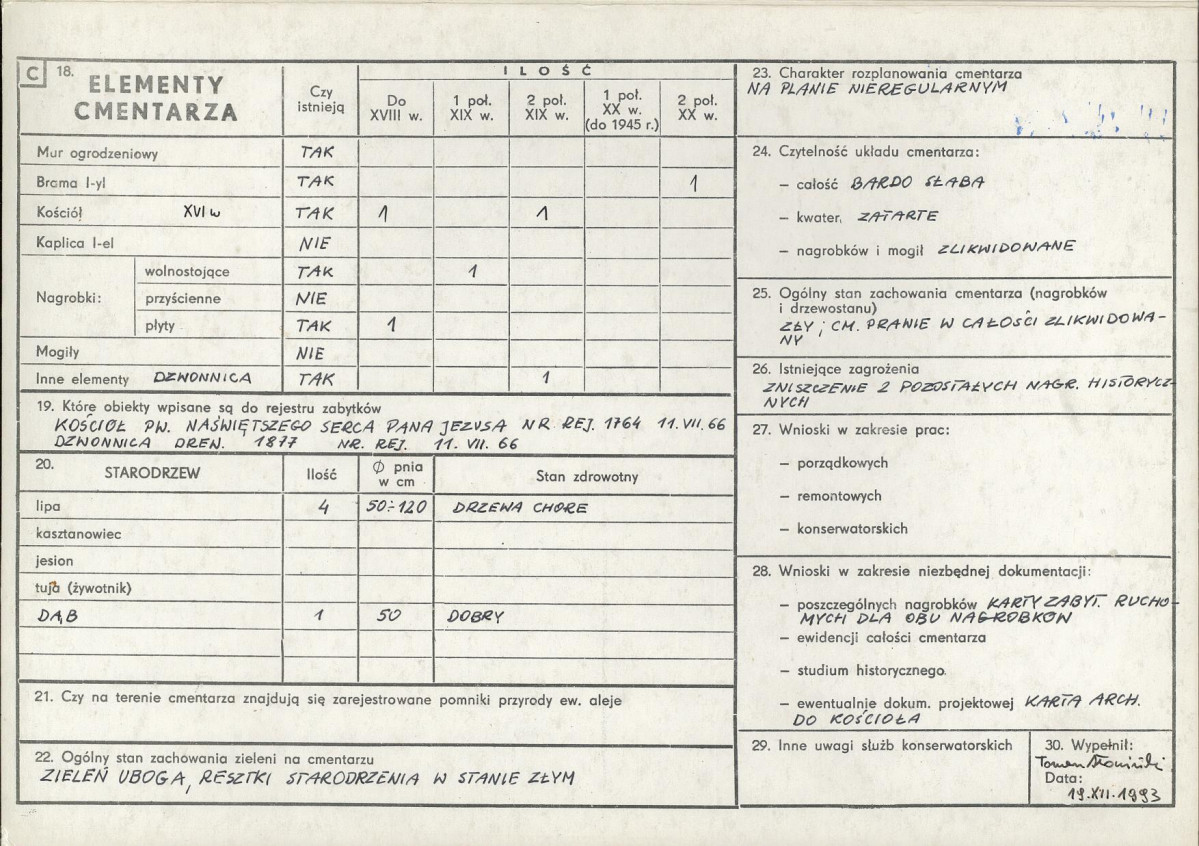 C 18. ELEMENTY CMENTARZA
Czy istnieją
ILOŚĆ
Do XVIII w.
1 poł. XIX w.
2 poł. XIX w.
1 poł. XX w. (do 1945 r.)
2 poł. XX w.
Mur ogrodzeniowy TAK
Brama I-yl TAK 1
Kościół XVI w TAK 1 1
Kaplica I-el NIE
Nagrobki:
wolnostojące TAK 1
przyścienne NIE
płyty TAK 1
Mogiły NIE
Inne elementy DZWONNICA TAK 1
19. Które obiekty wpisane są do rejestru zabytków
KOŚCIOŁ PW. NAŚWIĘTSZEGO SERCA PANA JEZUSA NR REJ. 1764 11.VII.66
DZWONNICA DREN. 1877 NR. REJ. 11. VII. 66
20. STARODRZEW
Ilość
Ø pnia w cm
Stan zdrowotny
lipa 4 50÷120 DRZEWA CHORE
kasztanowiec
jesion
tuja (żywotnik)
DĄB 1 50 DOBRY
21. Czy na terenie cmentarza znajdują się zarejestrowane pomniki przyrody ew. aleje
22. Ogólny stan zachowania zieleni na cmentarzu
ZIELEŃ UBOGA, RESZTKI STARODRZENIA W STANIE ZŁYM
23. Charakter rozplanowania cmentarza
NA PLANIE NIEREGULARNYM
24. Czytelność układu cmentarza:
– całość BARDO SŁABA
– kwater, ZATARTE
– nagrobków i mogił ZLIKWIDOWANE
25. Ogólny stan zachowania cmentarza (nagrobków
i drzewostanu)
ZŁY, CM. PRANIE W CAŁOŚCI ZLIKWIDOWA-
NY
26. Istniejące zagrożenia
ZNISZCZENIE 2 POZOSTAŁYCH NAGR. HISTORYCZ-
NYCH
27. Wnioski w zakresie prac:
– porządkowych
– remontowych
– konserwatorskich
28. Wnioski w zakresie niezbędnej dokumentacji:
– poszczególnych nagrobków KARTY ZABYT. RUCHO-
MYCH DLA OBU NAGROBKÓW
– ewidencji całości cmentarza
– studium historycznego
– ewentualnie dokum. projektowej KARTA ARCH.
DO KOŚCIOŁA
29. Inne uwagi służb konserwatorskich
30. Wypełnił:
Data:
19.XII.1993